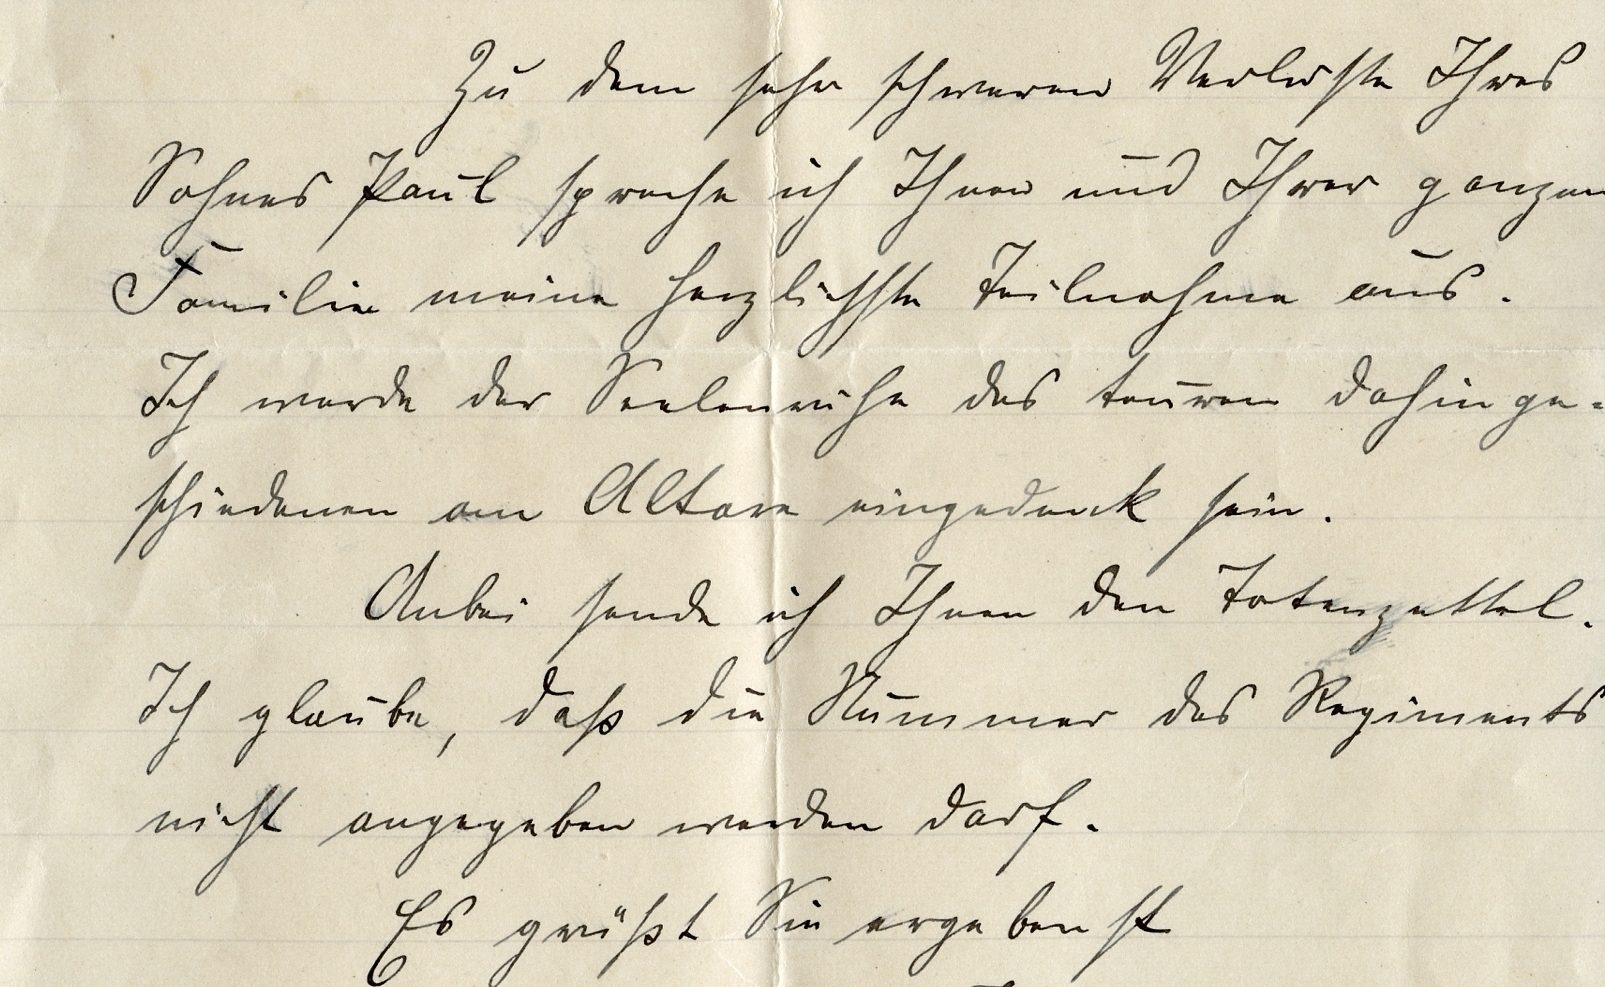 Zu dem sehr schweren Verluste Ihres
Sohnes Paul spreche ich Ihnen und Ihrer ganzen
Familie meine herzlichste Teilnahme aus.
Ich werde der Seelenruhe des teuren dahinge-
schiedenen am Altare eingedenk sein.
Anbei sende ich Ihnen den Totenzettel.
Ich glaube, daß die Nummer des Regiments
nicht angegeben werden darf.
Es grüßt Sie ergebenst